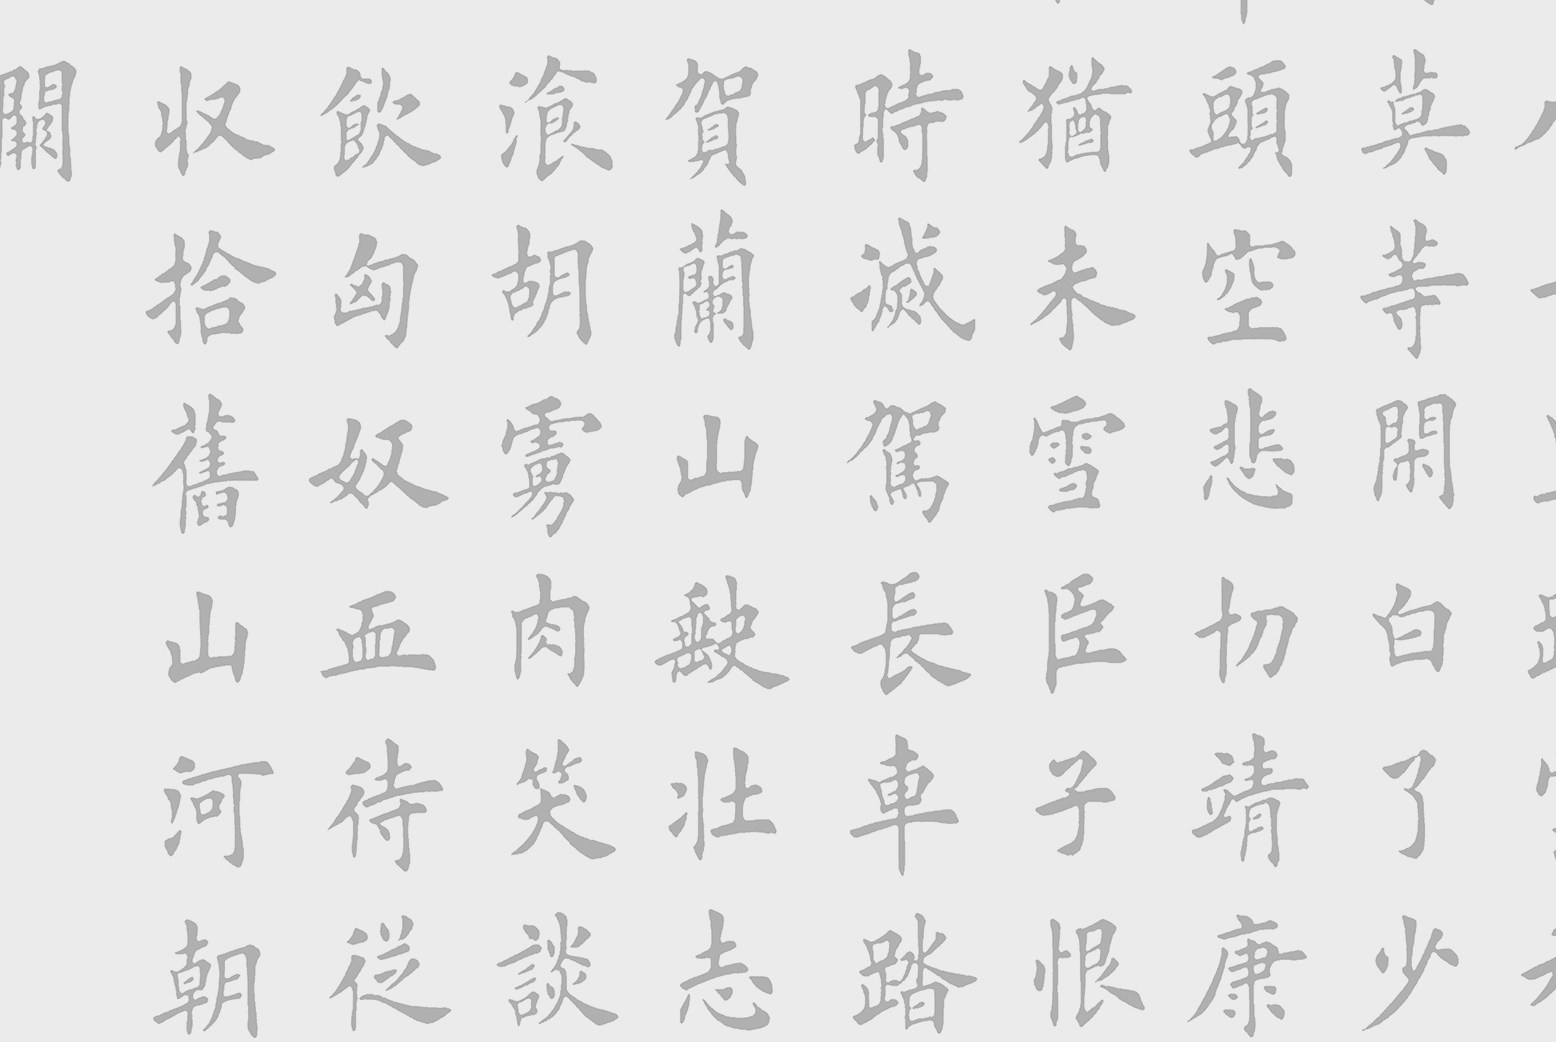 莫等閑白了少
頭空悲切靖康
猶未雪臣子恨
時滅駕長車踏
賀蘭山缺壮志
湌胡虜肉笑談
飲匈奴血待従
収拾舊山河朝
闕